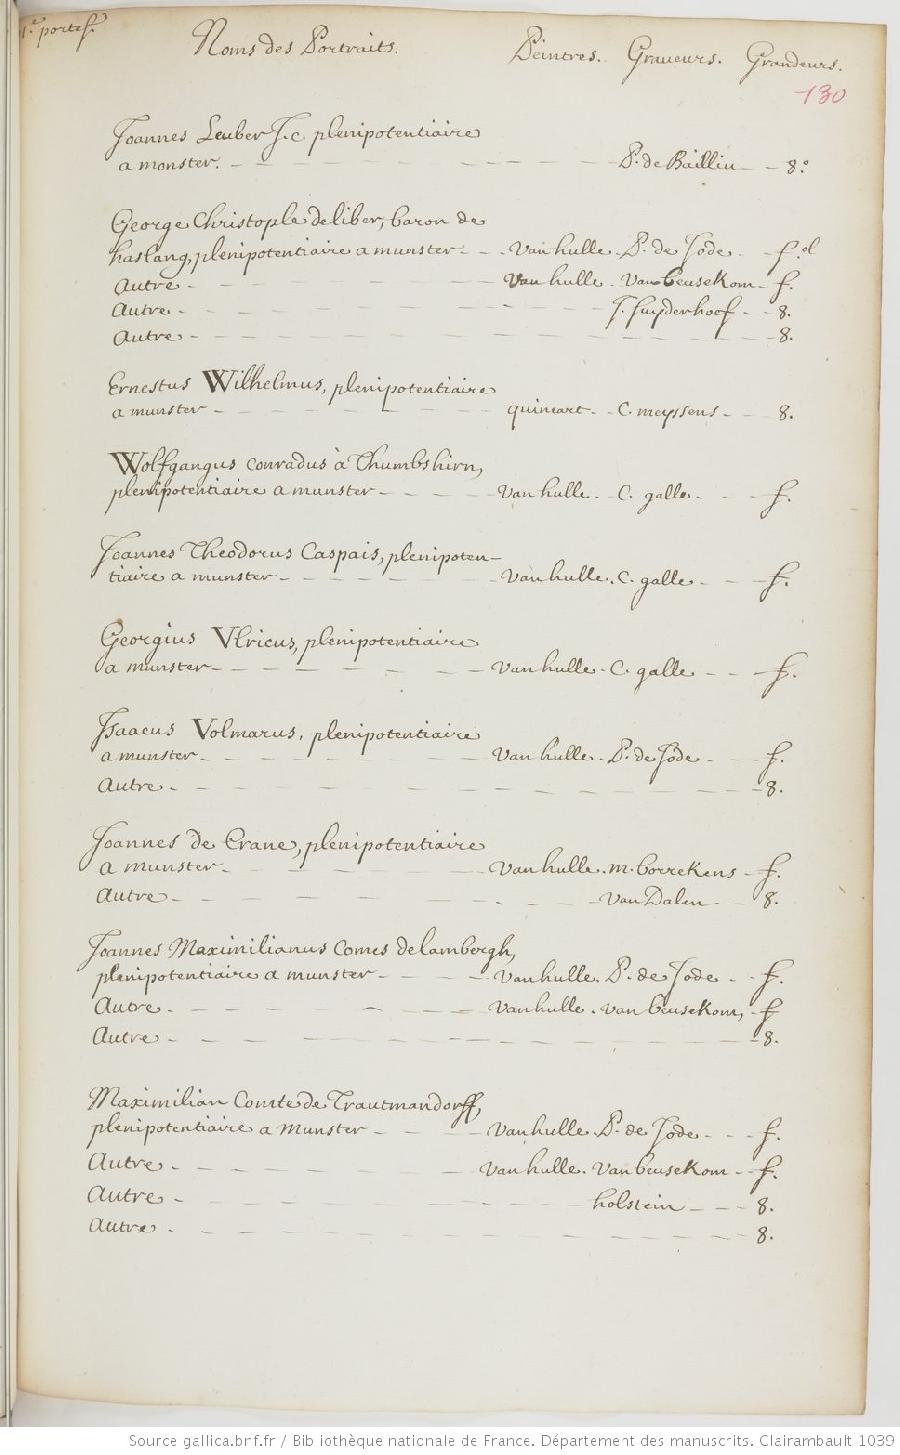 1.e portef.
Noms des Portraits. Peintres. Graveurs. Grandeurs.
130
Joannes Leuber J.c plenipotentiaire
a monster. P. de Bailliu 8.o
George Christople deliber, baron de
haslang, plenipotentiaire a munster van hulle P. de Jode f.ol
Autre van hulle. van beusekom f.
Autre J. suyderhoof 8.
Autre 8.
Ernestus Wilhelmus, plenipotentiaire
a munster quineart C. meyssens 8.
Wolfgangus conradus à Thumbshirn,
plenipotentiaire a munster van hulle C. galle f.
Joannes Theodorus Caspais, plenipoten-
tiaire a munster van hulle. C. galle f.
Georgius Vlricus, plenipotentiaire
a munster van hulle C. galle f.
Isaacus Volmarus, plenipotentiaire
a munster van hulle. P. de Jode f.
Autre 8.
Joannes de Crane, plenipotentiaire
a munster van hulle. m. borrekens f.
Autre van Dalen 8.
Joannes Maximilianus Comes delambergh,
plenipotentiaire a munster van hulle. P. de Jode f.
Autre van hulle. van beusekom, f
Autre 8.
Maximilian Comte de Trautmandorff,
plenipotentiaire a Munster van hulle P. de Jode f.
Autre van hulle. van beusekom f.
Autre holstein 8.
Autre 8.
Source gallica.bnf.fr / Bibliothèque nationale de France. Département des manuscrits. Clairambault 1039